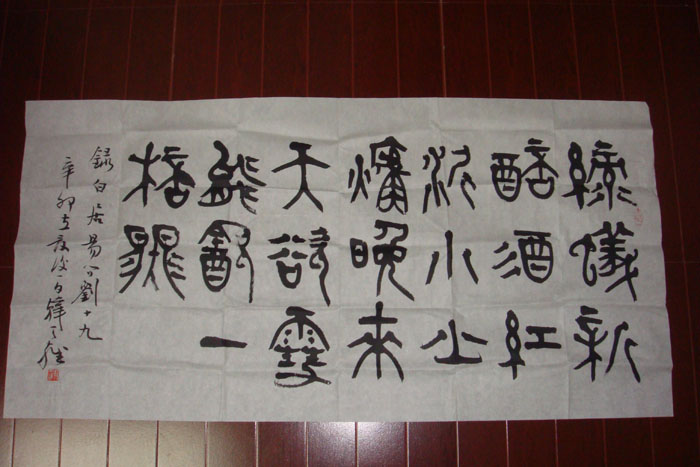 綠蟻新
醅酒紅
泥小火
爐晚來
天欲雪
能飲一
桮無
錄白居易問劉十九
辛卯立夏後一日